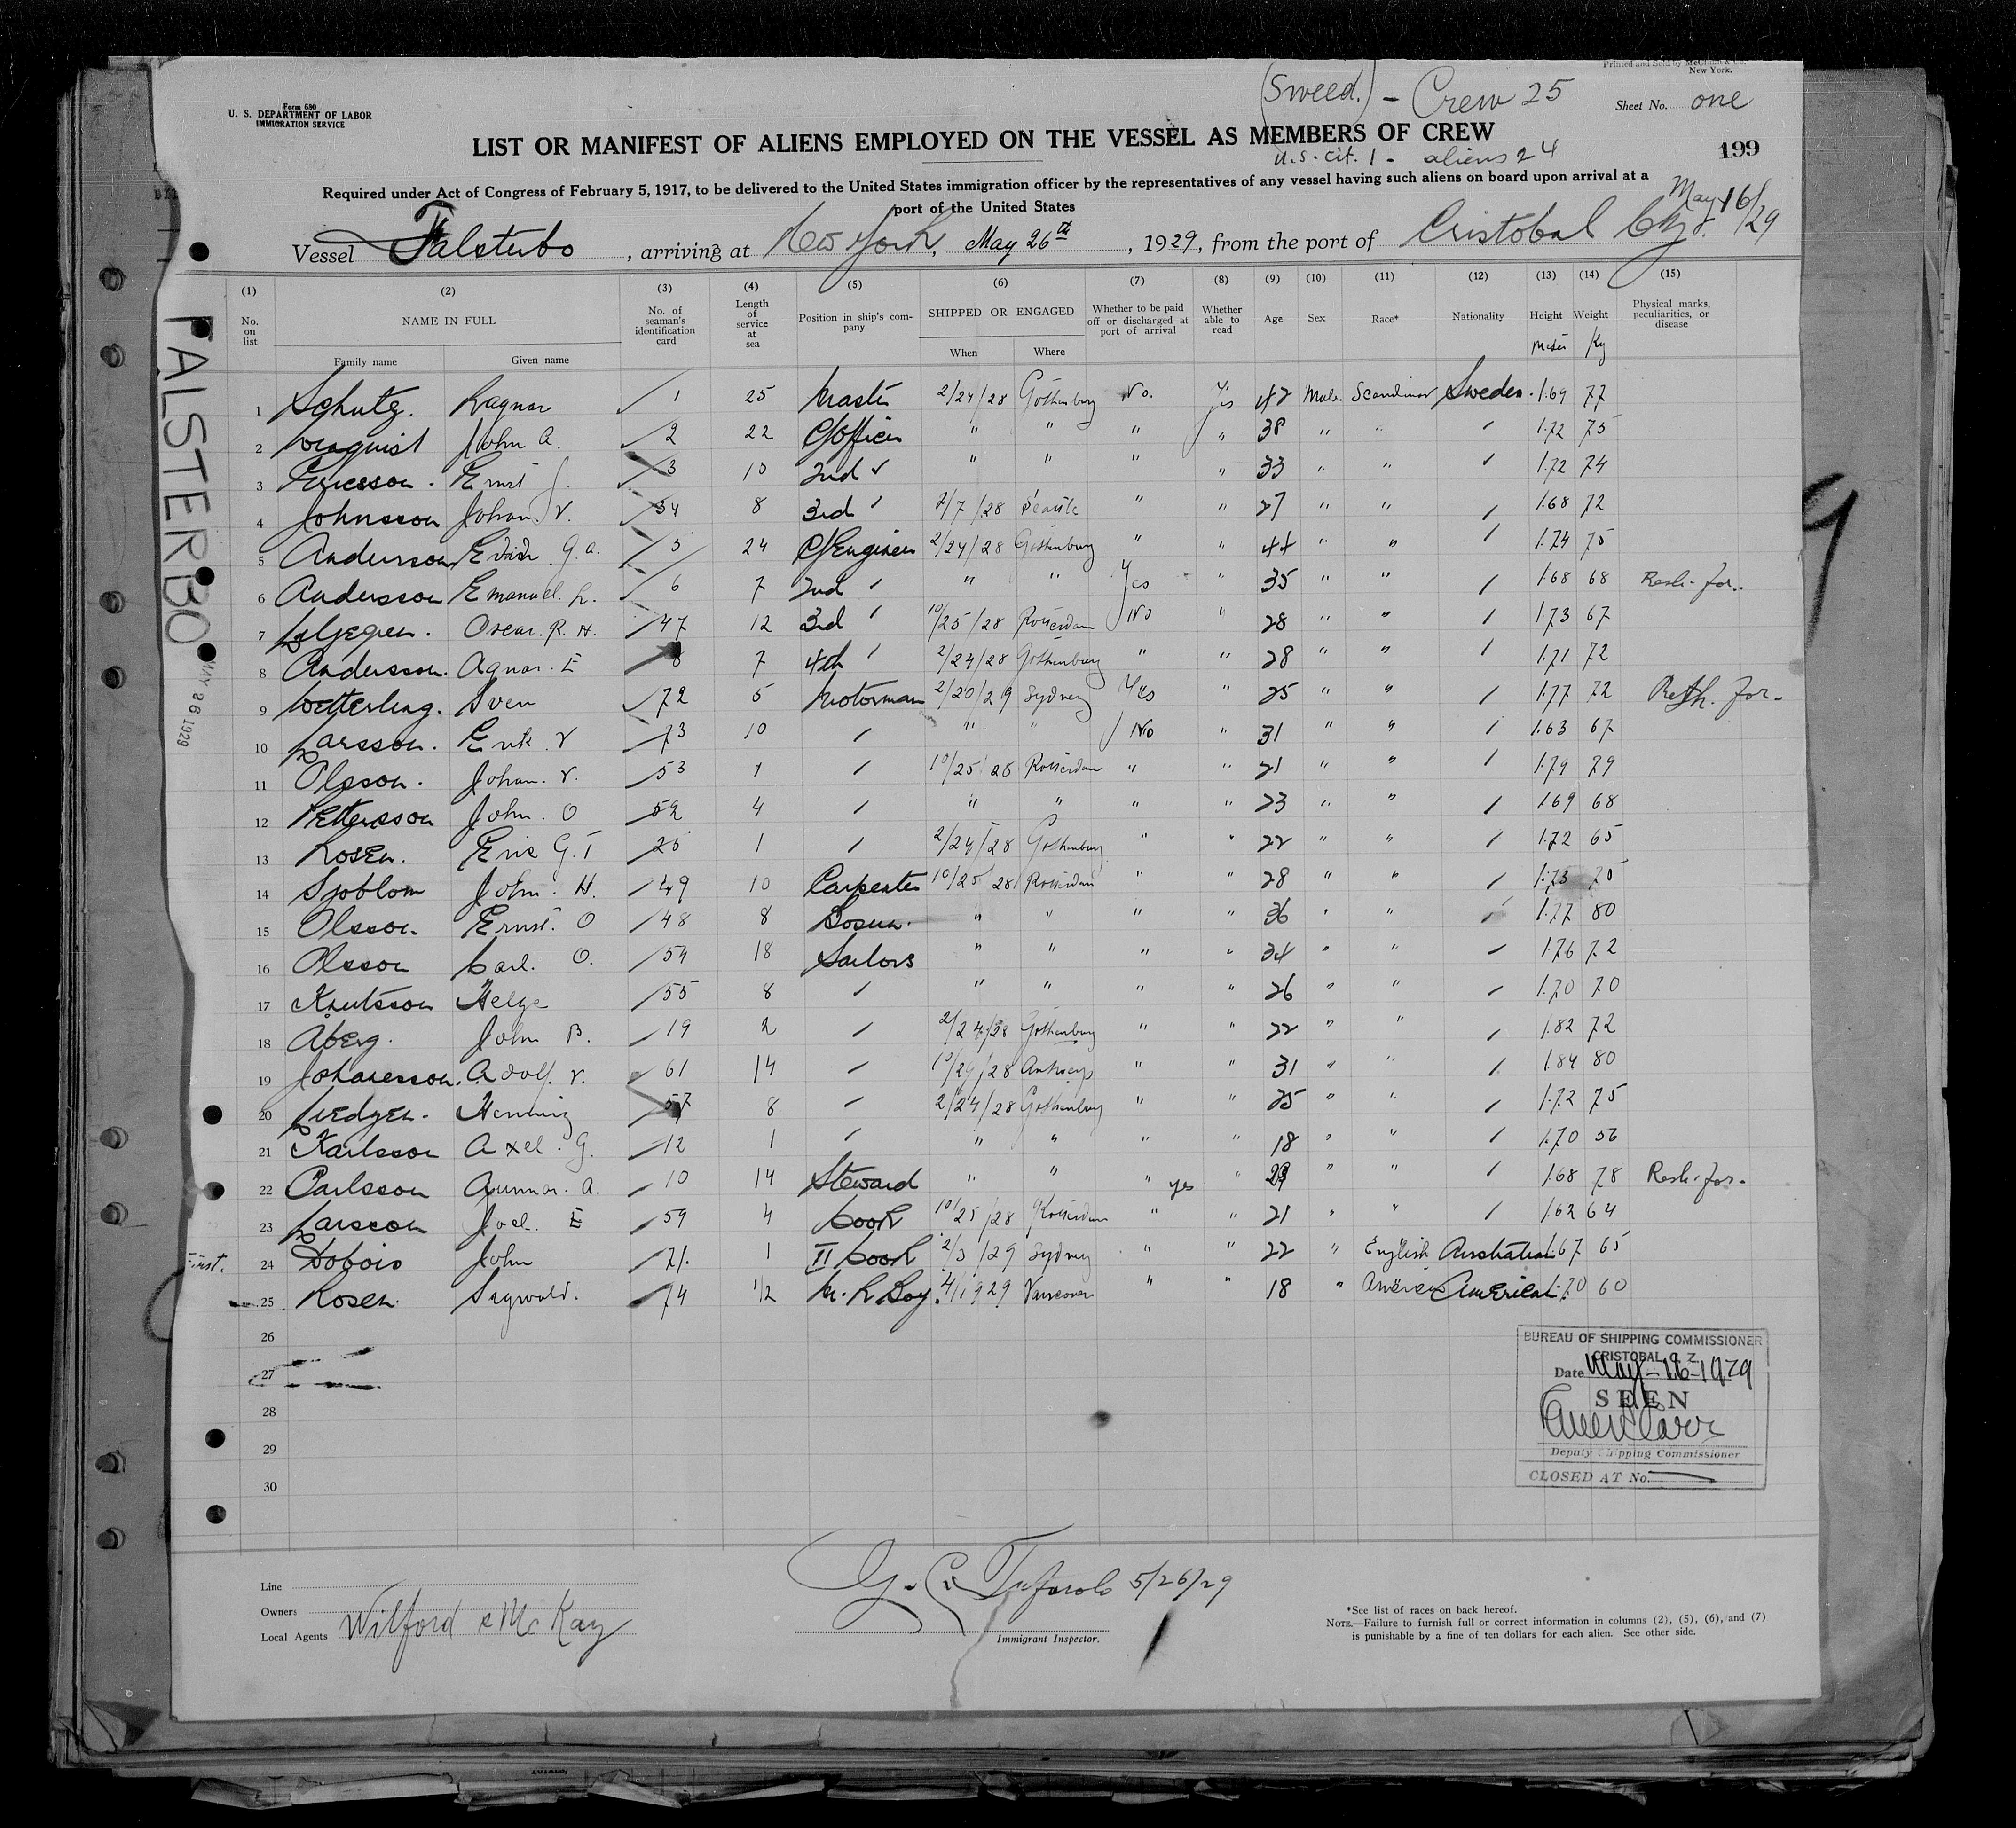 Printed and Sold by McClunn & Co.
New York.
(Sweed.) - Crew 25
Sheet No. one
Form 680
U. S. DEPARTMENT OF LABOR
IMMIGRATION SERVICE
LIST OR MANIFEST OF ALIENS EMPLOYED ON THE VESSEL AS MEMBERS OF CREW
U.S. cit. 1 - aliens 24
199
Required under Act of Congress of February 5, 1917, to be delivered to the United States immigration officer by the representatives of any vessel having such aliens on board upon arrival at a
port of the United States
May 16/29
Vessel Falsterbo, arriving at New York, May 26th, 1929, from the port of Cristobal
(1) (2) (3) (4) (5) (6) (7) (8) (9) (10) (11) (12) (13) (14) (15)
No. on list NAME IN FULL No. of seaman's identification card Length of service at sea Position in ship's company SHIPPED OR ENGAGED Whether to be paid off or discharged at port of arrival Whether able to read Age Sex Race* Nationality Height Weight Physical marks, peculiarities, or disease
Family name Given name When Where Meter Kg
1 Schutz. Ragnar 1 25 Master 2/24/28 Gothenburg No. Yes 42 Male Scandinav Sweden 1.69 77
2 John A. 2 22 C/Officer " " " " 38 " " " 1.72 75
3 Ericsson. Ernst J. 3 10 2nd " " " " " 33 " " " 1.72 74
4 Johnsson Johan. V. 34 8 3rd " 2/7/28 Seattle " " 27 " " " 1.68 72
5 Andersson G. A. 5 24 C/Engineer 2/24/28 Gothenburg " " 44 " " " 1.74 75
6 Andersson Emanuel. L. 6 7 2nd " " " Yes " 35 " " " 1.68 68 Resh. for.
7 Oscar. R. H. 47 12 3rd " 10/25/28 Rotterdam No " 28 " " " 1.73 67
8 Andersson. Agnar. E 8 7 4th " 2/24/28 Gothenburg " " 28 " " " 1.71 72
9 Wetterling. Sven 72 5 Motorman 2/20/29 Sydney Yes " 25 " " " 1.77 72 Resh. for.
10 Larsson. Erik. V 73 10 " " " No " 31 " " " 1.63 67
11 Olsson. Johan. V. 53 1 " 10/25/28 Rotterdam " " 21 " " " 1.79 79
12 Pettersson John. O 52 4 " " " " " 23 " " " 1.69 68
13 Rosen. Eric G. T 25 1 " 2/24/28 Gothenburg " " 22 " " " 1.72 65
14 Sjoblom John. H. 49 10 Carpenter 10/25/28 Rotterdam " " 28 " " " 1.73 75
15 Olsson. Ernst. O 48 8 Bosun. " " " " 36 " " " 1.77 80
16 Olsson Carl. O. 54 18 Sailors " " " " 34 " " " 1.76 72
17 Knutsson Helge 55 8 " " " " " 26 " " " 1.70 70
18 Åberg. John B. 19 2 " 2/24/28 Gothenburg " " 22 " " " 1.82 72
19 Johanesson. Adolf. V. 61 14 " 10/29/28 Antwerp " " 31 " " " 1.84 80
20 Henning 57 8 " 2/24/28 Gothenburg " " 25 " " " 1.72 75
21 Karlsson Axel. G. 12 1 " " " " " 18 " " " 1.70 56
22 Carlsson Gunnar. A. 10 14 Steward " " " yes " 29 " " " 1.68 78 Resh. for.
23 Larsson Joel. E 59 4 Cook 10/25/28 Rotterdam " " 21 " " " 1.62 64
First. 24 Dobois John 71. 1 II Cook 2/3/29 Sydney " " 22 " English Australian 1.67 65
25 Rosen. Sigwald. 74 1/2 M. R Boy. 4/1929 Vancouver " " 18 " American American 1.70 60
26
27
28
29
30
FALSTERBO
MAY 26 1929
BUREAU OF SHIPPING COMMISSIONER
CRISTOBAL, C. Z.
Date May-16-1929
SEEN
Deputy Shipping Commissioner
CLOSED AT No.
Line
Owners
Local Agents Wilford & McKay
5/26/29
Immigrant Inspector.
*See list of races on back hereof.
NOTE.—Failure to furnish full or correct information in columns (2), (5), (6), and (7)
is punishable by a fine of ten dollars for each alien. See other side.